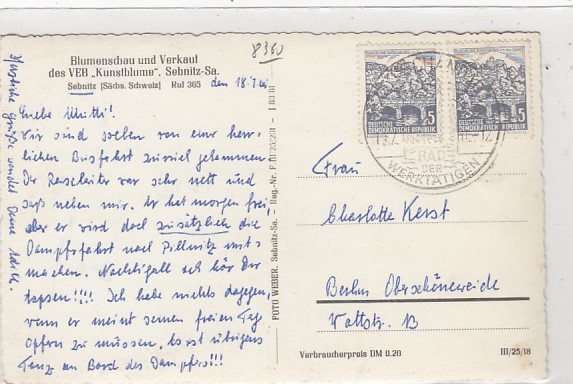 Blumenschau und Verkauf
des VEB „Kunstblume", Sebnitz-Sa.
Sebnitz (Sächs. Schweiz) Ruf 365
den 18.7.61
8360
Liebe Mutti!
Wir sind soeben von einer herr-
lichen Busfahrt zurück gekommen.
Der Reiseleiter war sehr nett und
saß neben mir. Er hat morgen frei
aber er wird doch zusätzlich die
Dampferfahrt nach Pillnitz mit-
machen. Nachtigall ich hör Dir
tapsen!!!! Ich habe nichts dagegen,
wenn er meint seinen freien Tag
opfern zu müssen. Es ist übrigens
Tanz an Bord des Dampfers!!!
Herzliche Grüße sendet Deine
FOTO WEBER, Sebnitz-Sa. - Reg.-Nr. F
DEUTSCHE
DEMOKRATISCHE REPUBLIK
5
DEUTSCHE
DEMOKRATISCHE REPUBLIK
5
BAD
DER
WERKTÄTIGEN
Frau
Charlotte Kerst
Berlin Oberschöneweide
Wattstr. 13
Verbraucherpreis DM 0.20
III/25/18